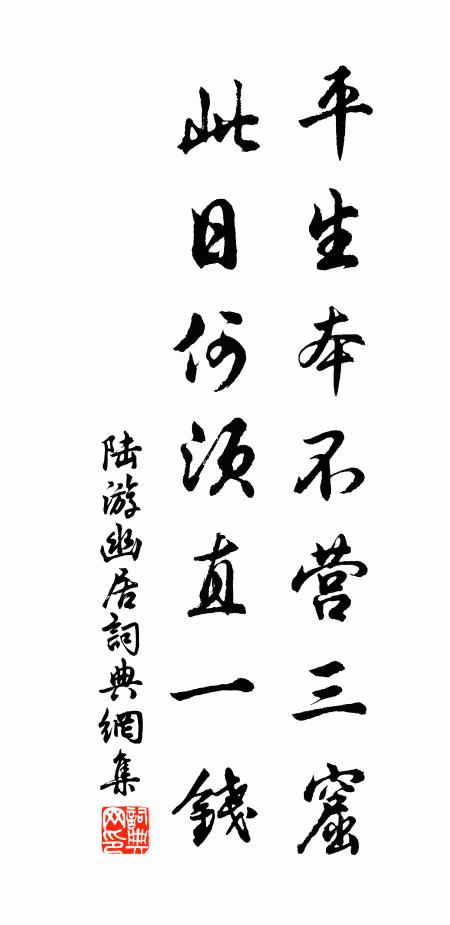 平生本不营三窟
此日何须直一錢
陆游幽居詞典網集
詞典网印